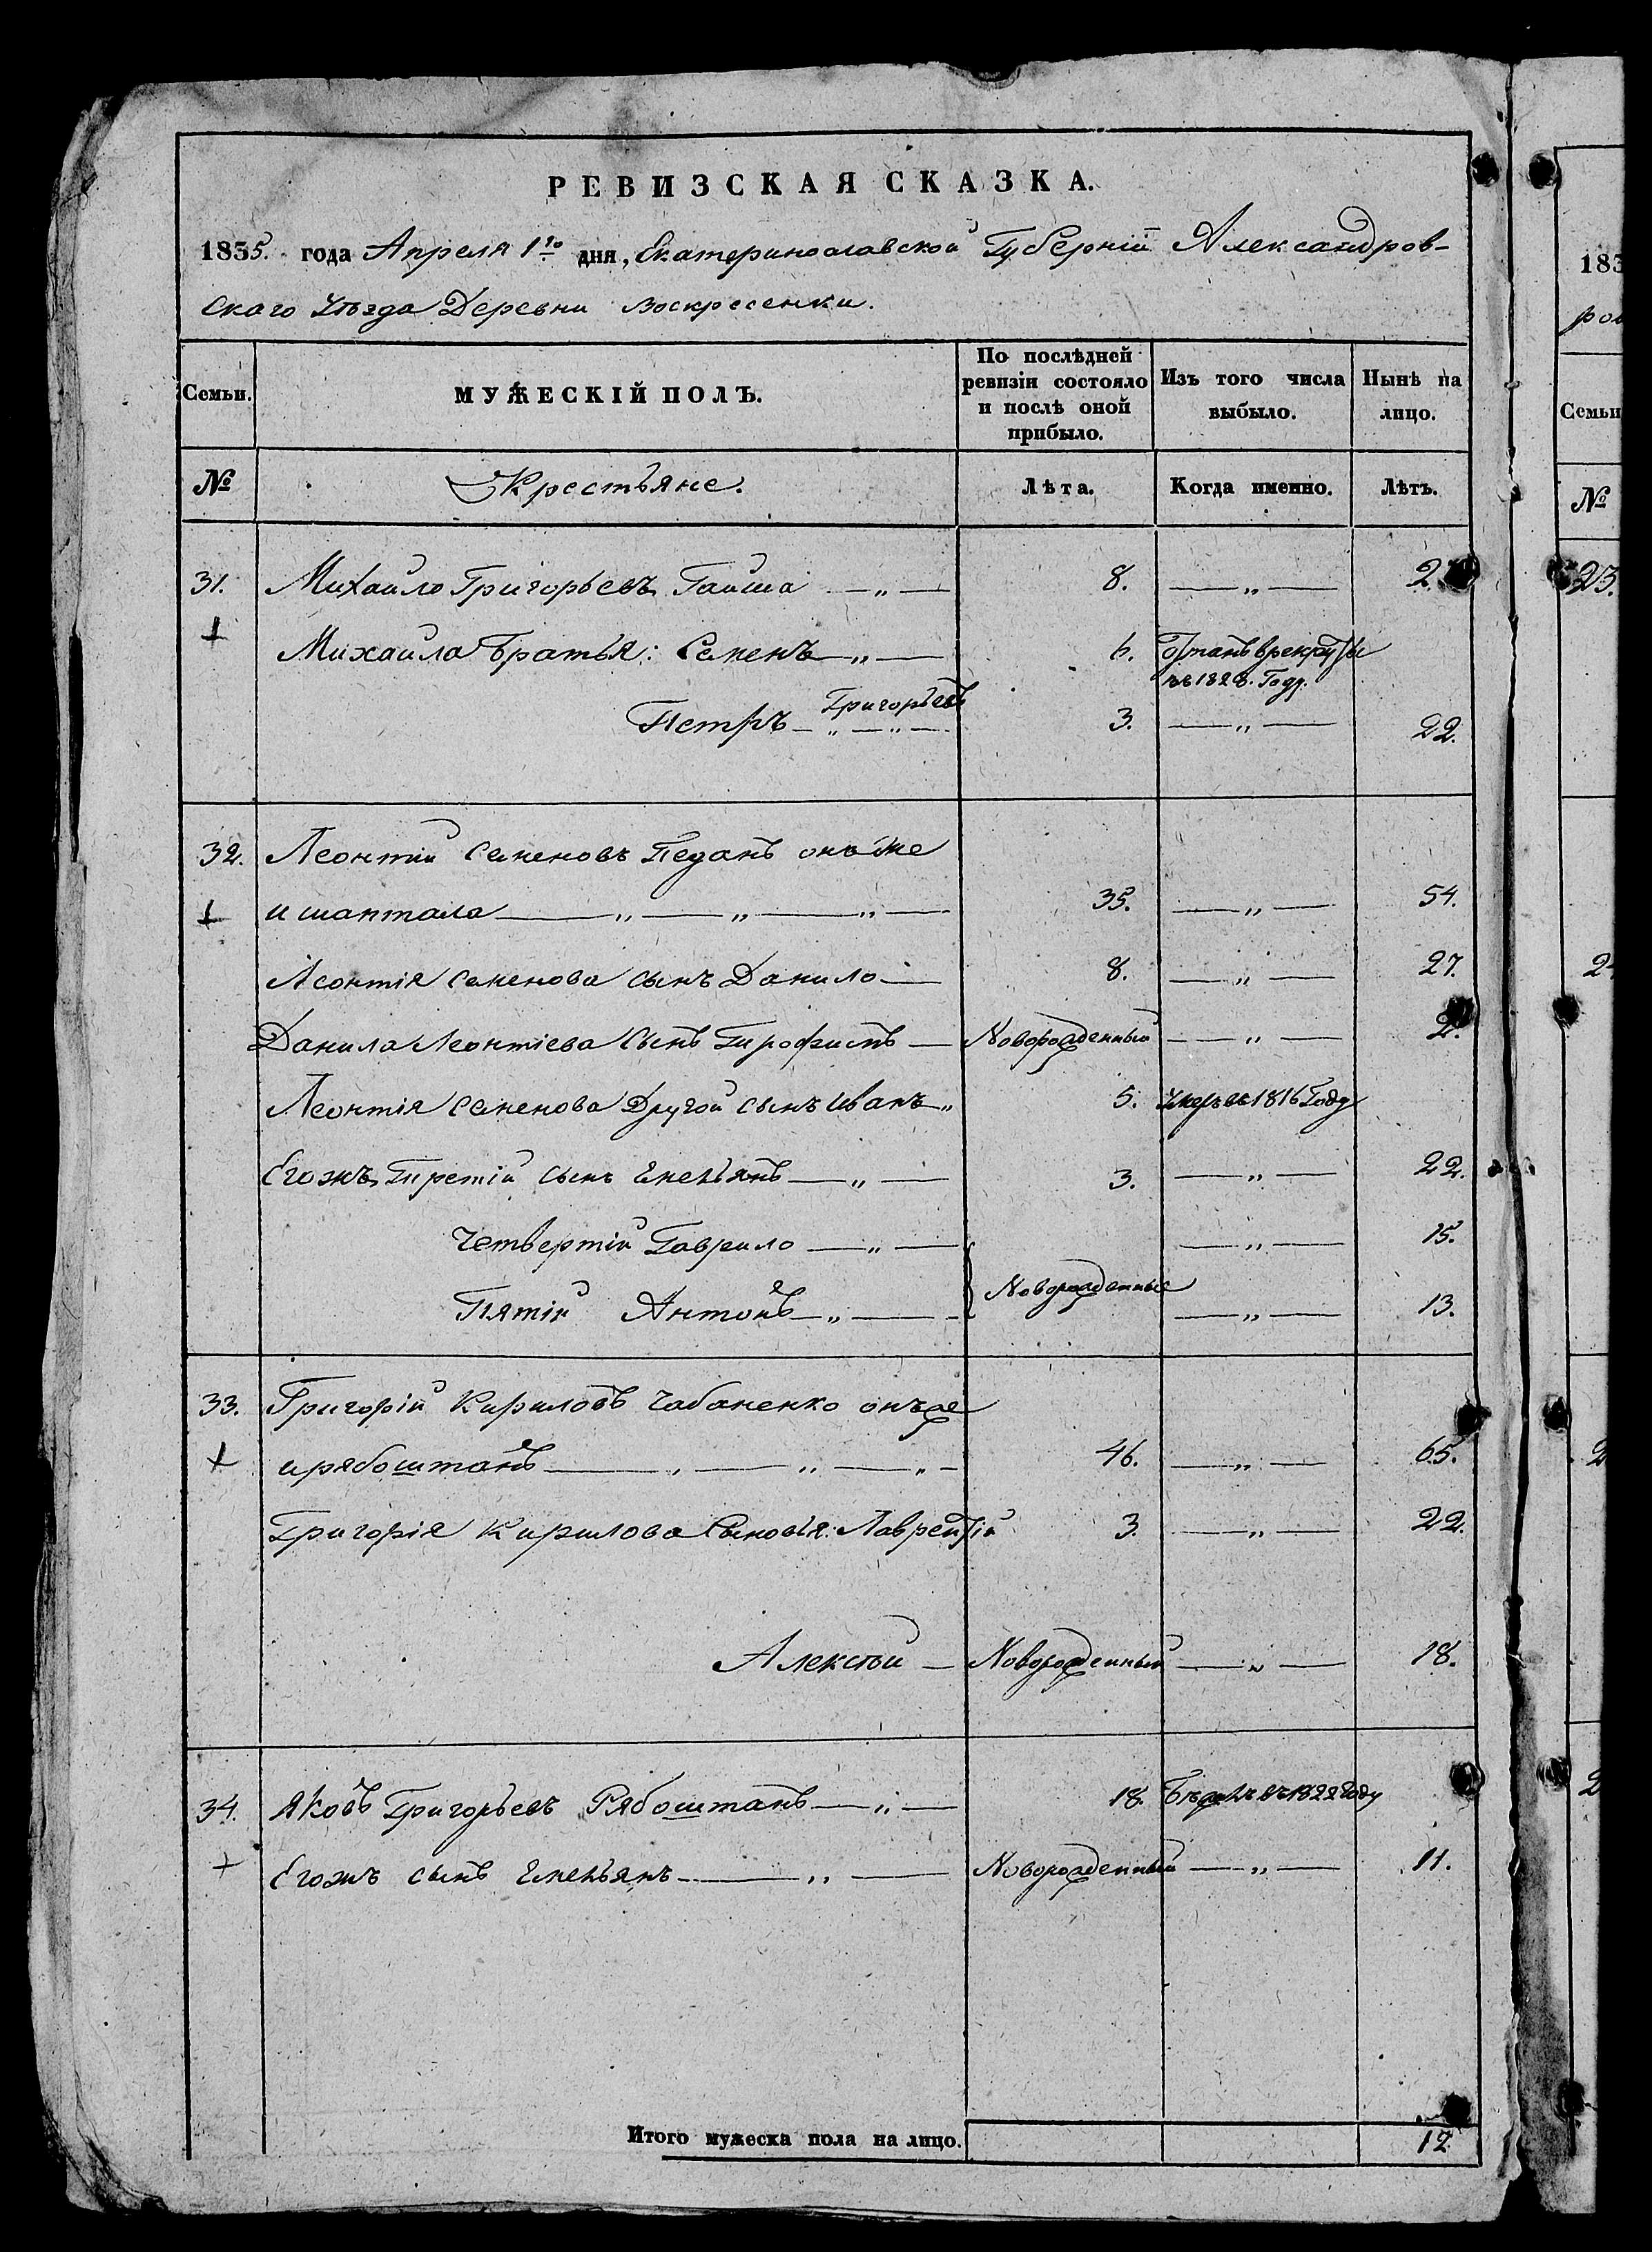 РЕВИЗСКАЯ СКАЗКА.
1835. года Апреля 1го дня, Екатеринославской Губерніи Александров-
скаго Уѣзда Деревни Воскресенки.
Семьи. МУЖЕСКІЙ ПОЛЪ. По послѣдней ревизіи состояло и послѣ оной прибыло. Изъ того числа выбыло. Нынѣ на лицо.
№ Крестьяне. Лѣта. Когда именно. Лѣтъ.
31. Михайло Григорьевъ Гайша — „ — 8. — „ — 2
Михайла Братья: Семенъ — „ — 6. Отданъ врекруты
въ 1828. Году.
Григорьевъ
Петръ — „ — „ — 3. — „ — 22.
32. Леонтій Семеновъ Педанъ онъ же
и шаптала — „ — „ — „ — 35. — „ — 54.
Леонтія Семенова сынъ Данило — 8. — „ — 27.
Данила Леонтіева Сынъ Тирофитъ — Новорожденный — „ — 2.
Леонтія Семенова Другой сынъ Иванъ „ 5. Умеръ въ 1816 Году
Егожъ Третій сынъ Емельянъ — „ — 3. — „ — 22.
Четвертій Гаврило — „ — — „ — 15.
Новорожденные
Пятій Антонъ — „ — — „ — 13.
33. Григорій Кириловъ Чабаненко онъже
ирябоштанъ — „ — „ — „ — 46. — „ — 65.
Григорія Кирилова Сыновья: Лаврентій 3. — „ — 22.
Алексѣй — Новорожденный — „ — 18.
34. Яковъ Григорьевъ Рябоштанъ — „ — 18. Бѣжалъ въ 1822 Году
Егожъ сынъ Емельянъ — „ — Новорожденный — „ — 11.
Итого мужеска пола на лицо. 12
183
ров
Семьи
№
23.